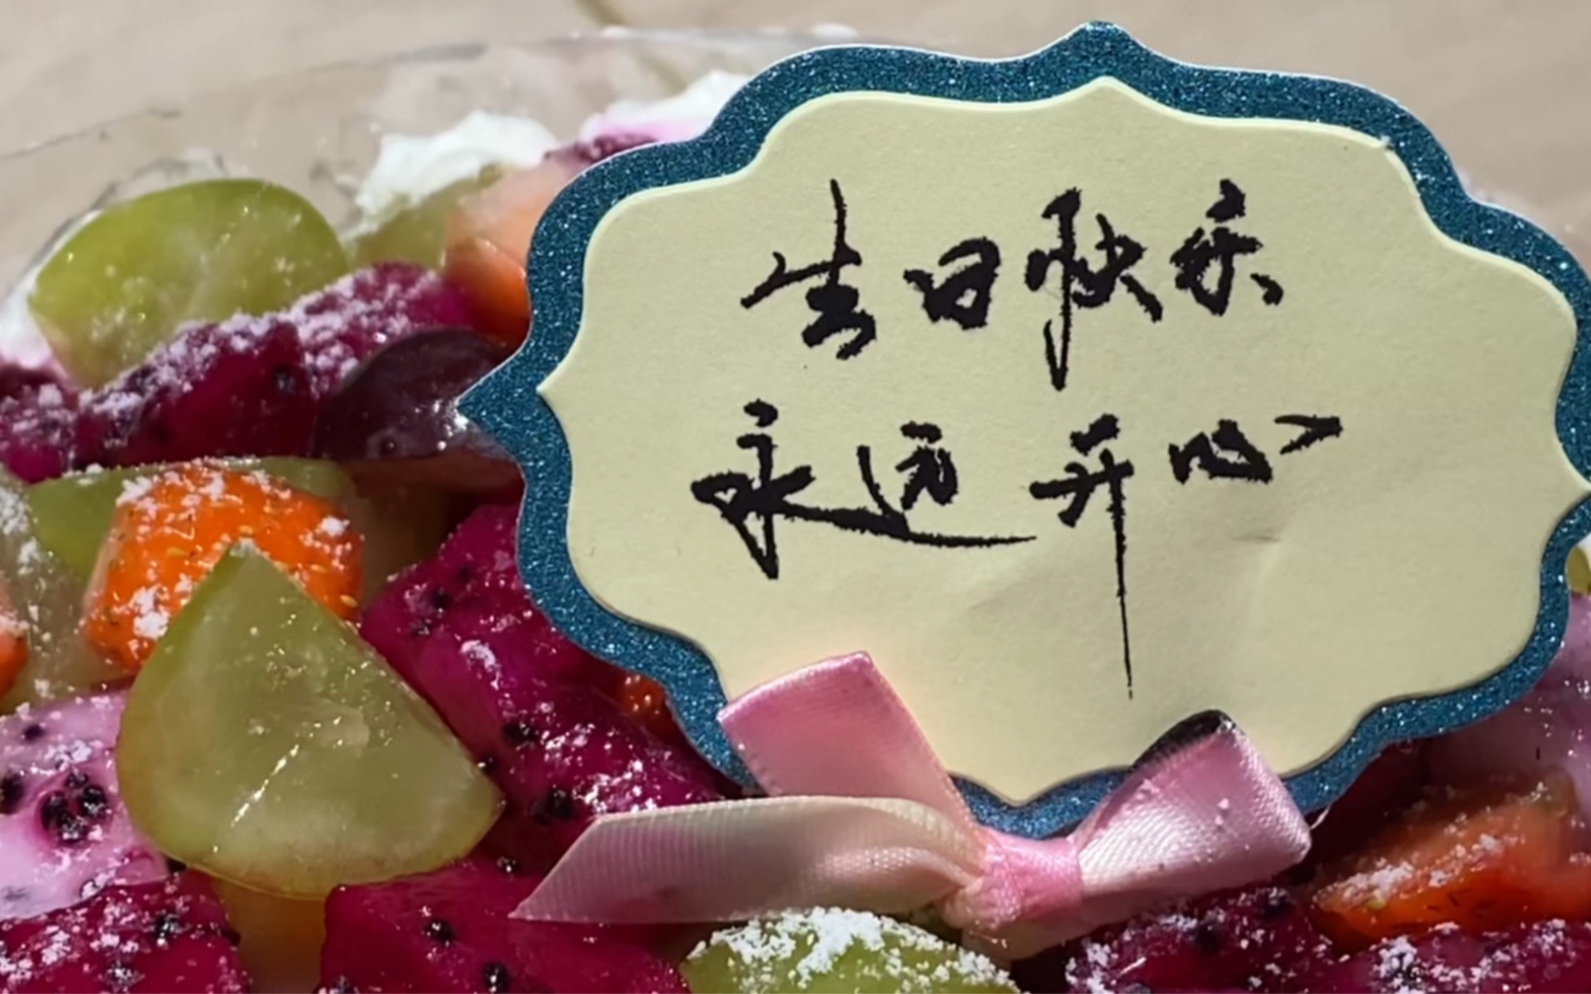 生日快乐
永远开心